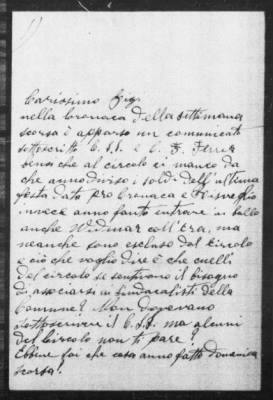 Carissimo Gigi
nella Cronaca della settimana
scorsa è apparso un comunicato
sottoscritto C. S. I. e C. F. Ferrer
senza che al circolo ci manco da
che anno diviso i soldi. Dell'ultima
festa data pro Cronaca e Risveglio
invece anno fatto entrare in ballo
anche Widmar coll'Era, ma
neanche sono escluso dal Circolo
e ciò che voglio dire è che quelli
del circolo se sentivano il bisogno
di associarsi ai sindacalisti della
Comune? Non dovevano
sottoscrivere il C. S. I. ma alcuni
del Circolo non ti pare?
Ebbene poi che cosa anno fatto domenica
scorsa!